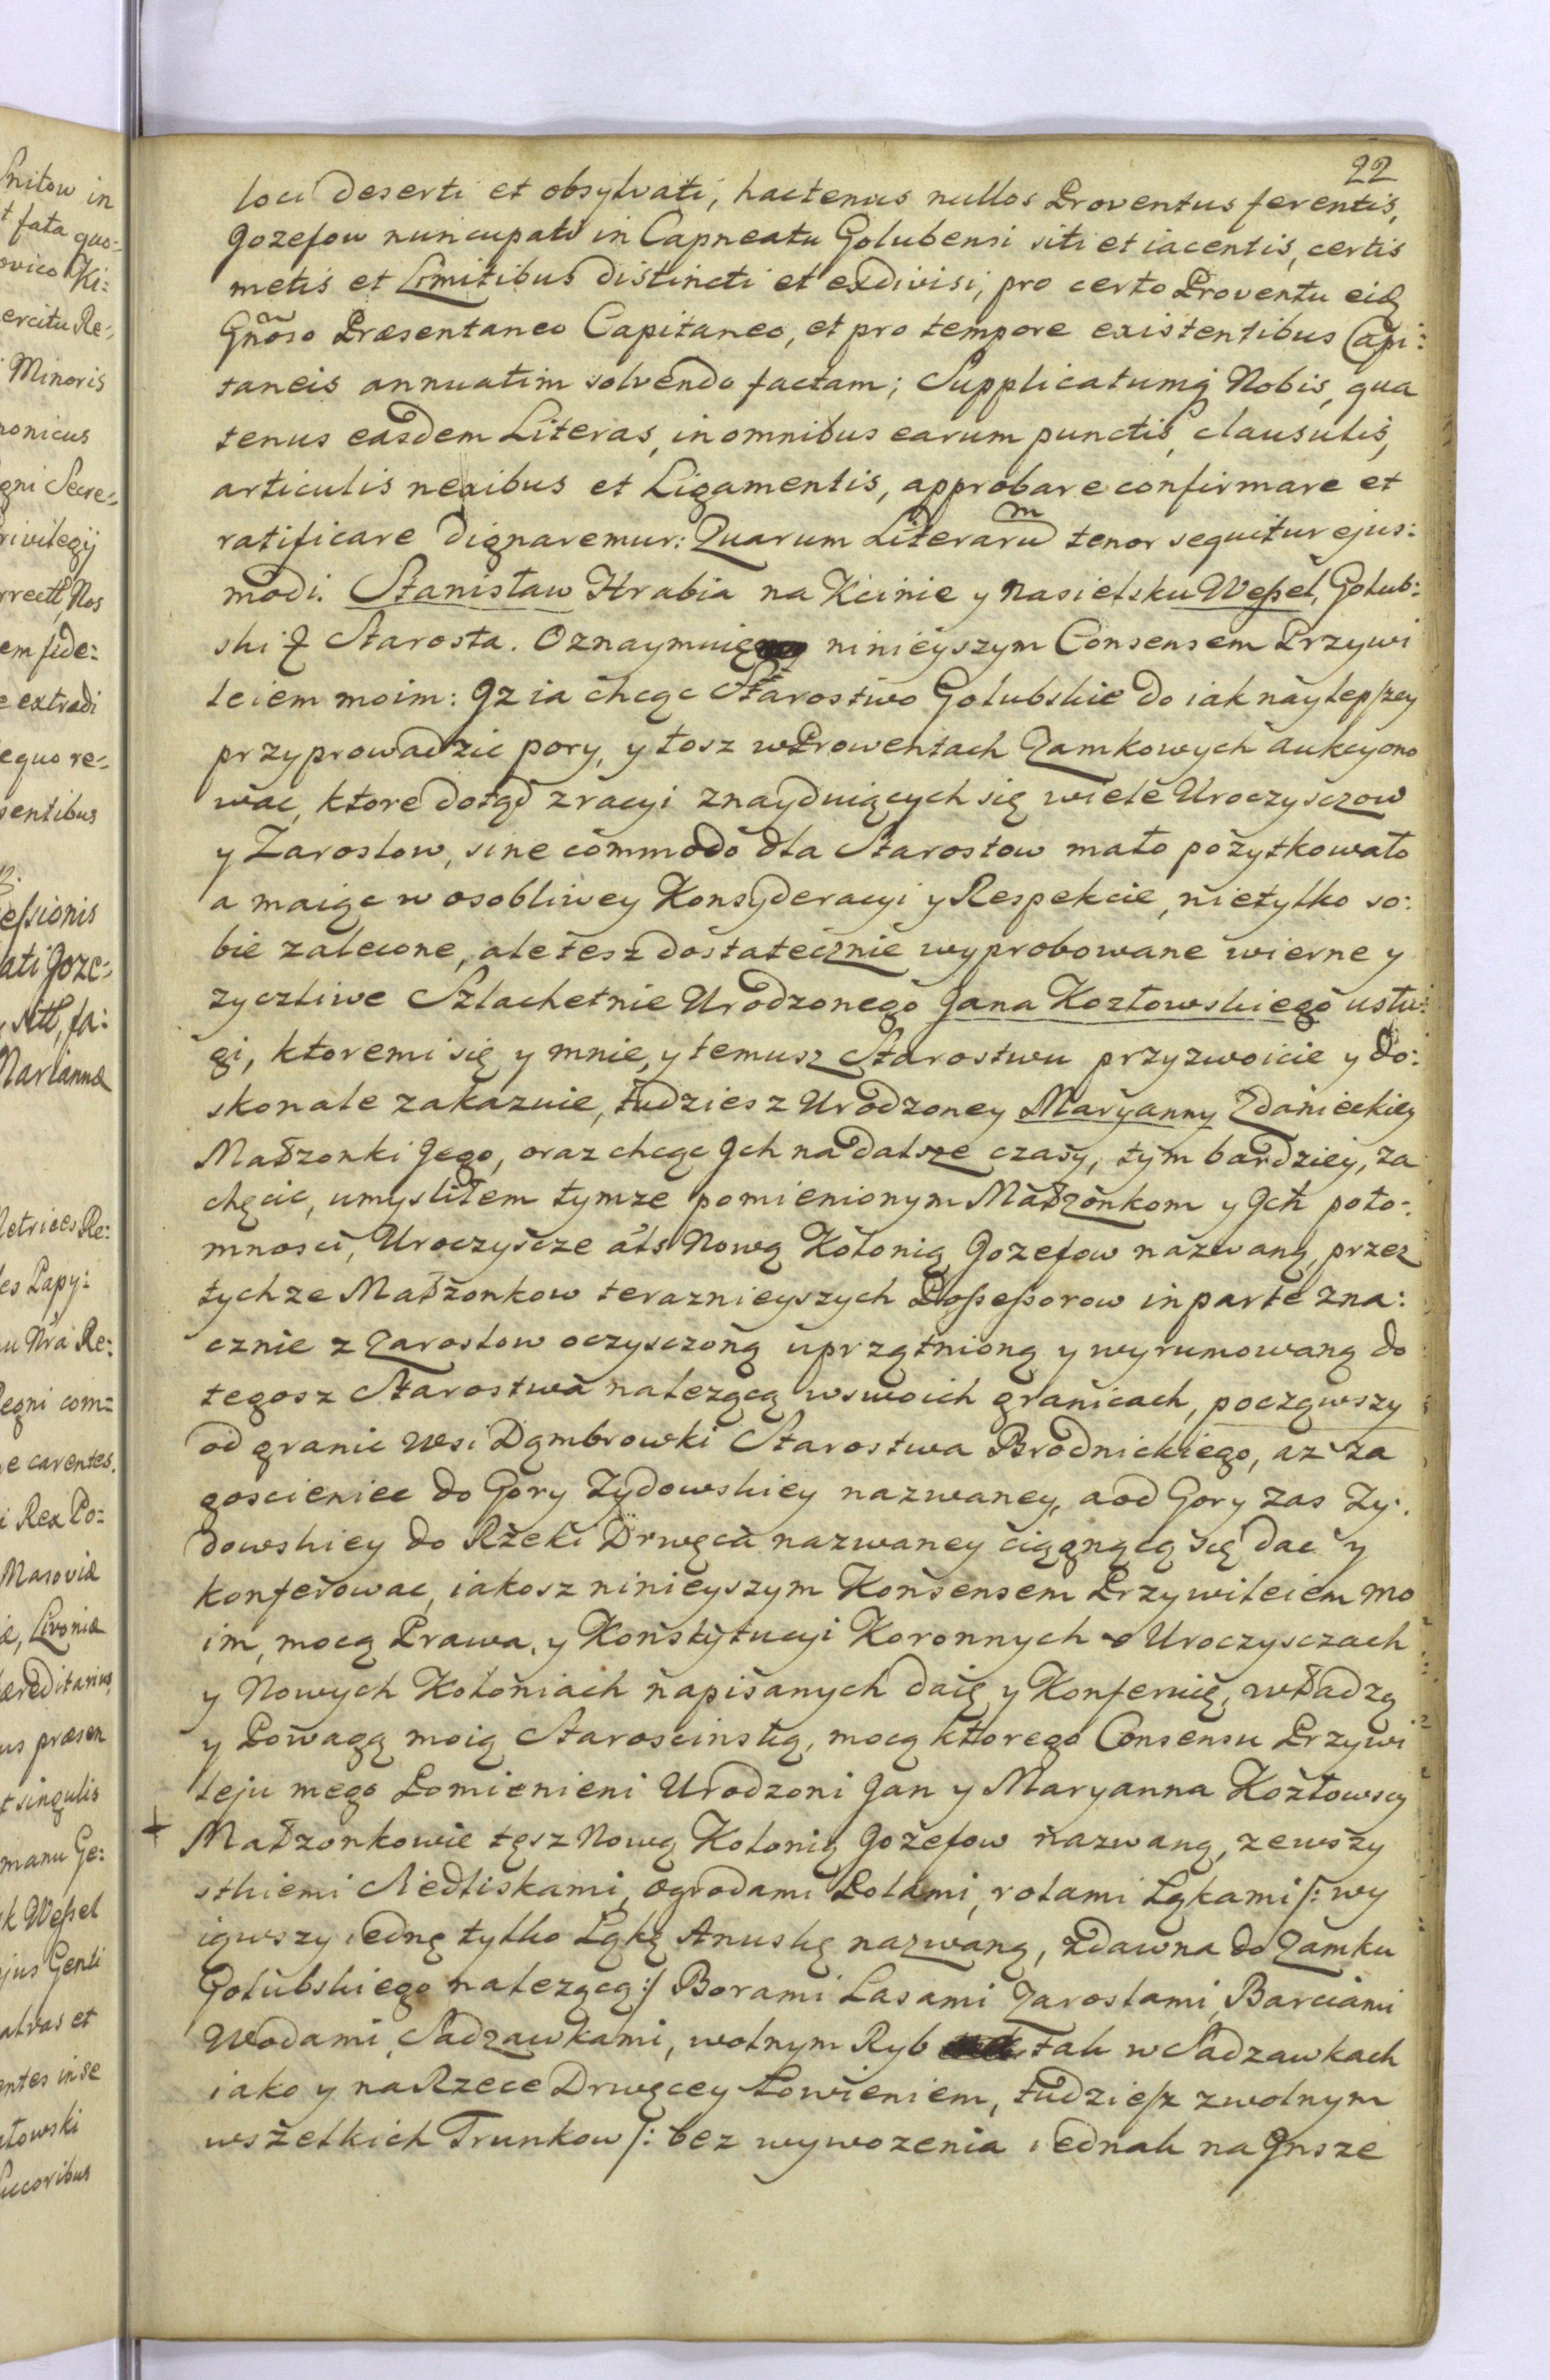 22
loci deserti et obsylvati, hactenus nullos Proventus ferentis,
Jozefow nuncupati in Capneatu Golubensi siti et iacentis, certis
metis et Limitibus distincti et exdivisi, pro certo Proventu eidē
Gñoso Præsentaneo Capitaneo, et pro tempore existentibus Capi:
taneis annuatim solvendo factam; Supplicatumq́ Nobis, qua
tenus easdem Literas, in omnibus earum punctis, clausulis,
articulis nexibus et Ligamentis, approbare confirmare et
ratificare dignaremur: Quarum Literarum tenor sequitur ejus:
modi. Stanisław Hrabia na Kcinie y Nasielsku Weſsel, Golub:
ski & Starosta. Oznaymuię ninieyszym Consensem Przywi
leiem moim: Iz ia chcąc Starostwo Golubskie do iak naylepſzey
przyprowadzic pory, y tosz w Prowentach Zamkowych aukcyono
wac, ktore dotąd z racyi znayduiących się wiele Uroczysczow
y Zaroslow, sine commodo dla Starostow mało pożytkowało
a maiąc w osobliwey Konsyderacyi y Respekcie, nietylko so:
bie zalecone, ale tesz dostatecznie wyprobowane wierne y
zyczliwe Szlachetnie Urodzonego Jana Kozłowskiego usłu:
gi, ktoremi się y mnie, y temusz Starostwu przyzwoicie y do:
skonale zakazuie, tudziesz Urodzoney Maryanny Zdanieckiey
Małzonki Jego, oraz chcąc Ich na dalsze czasy, tym bardziey, za
chęcic, umysliłem tymze pomienionym Małzonkom y Ich poto:
mnosci, Uroczyscze als Nową Kolonią Jozefow nazwaną, przez
tychze Małzonkow teraznieyszych Poſseſsorow in parte zna:
cznie z Zaroslow oczysczoną uprzątnioną y wyrumowaną do
tegosz Starostwa nalezącą w swoich granicach, począwszy
od granic wsi Dąmbrowki Starostwa Brodnickiego, az za
goscieniec do Gory Zydowskiey nazwaney, a od Gory zas Zy:
dowskiey do Rzeki Drwęca nazwaney ciągnącą się dac y
konferowac, iakosz ninieyszym Konsensem Przywileiem mo
im, mocą Prawa, y Konstytucyi Koronnych o Uroczysczach
y Nowych Koloniach napisanych daię y Konferuię, władzą
y Powagą moią Starościnską, mocą ktorego Consensu Przywi
leju mego Pomienieni Urodzoni Jan y Maryanna Kozłowscy
+ Małzonkowie tęsz Nową Kolonią Jozefow nazwaną, ze wszy
stkiemi Siedliskami, ogrodami Polami, rolami Łąkami /: wy
iąwszy iednę tylko Łąkę Anuskę nazwaną, zdawna do Zamku
Golubskiego nalezącą :/ Borami Lasami Zaroslami, Barciami
Wodami, Sadzawkami, wolnym Ryb tak w Sadzawkach
iako y na Rzece Drwęcey Łowieniem, tudzieſz z wolnym
wszelkich Trunkow /: bez wywozenia iednak na Insze